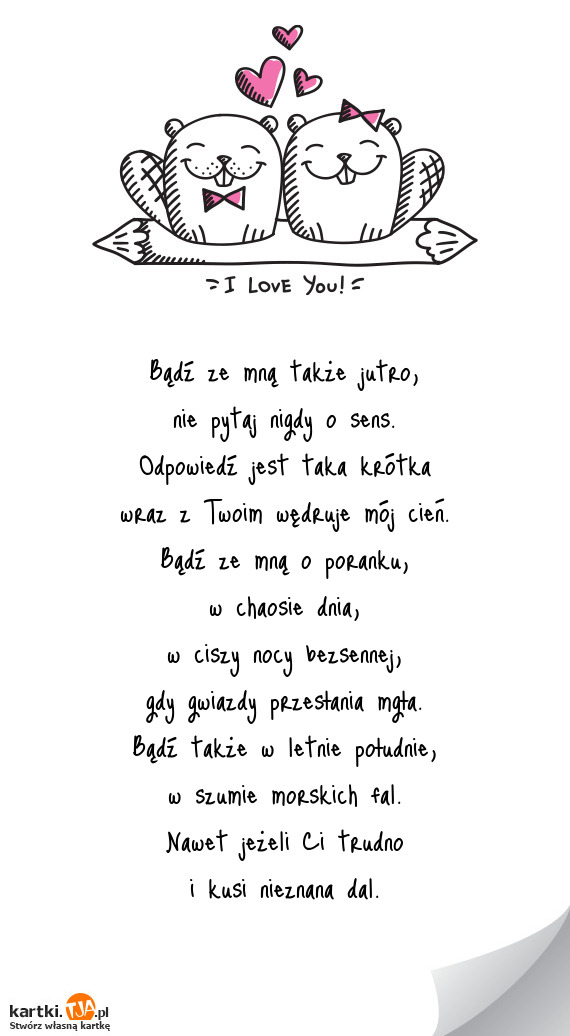 I LOVE YOU!
Bądź ze mną także jutro,
nie pytaj nigdy o sens.
Odpowiedź jest taka krótka
wraz z Twoim wędruje mój cień.
Bądź ze mną o poranku,
w chaosie dnia,
w ciszy nocy bezsennej,
gdy gwiazdy przesłania mgła.
Bądź także w letnie południe,
w szumie morskich fal.
Nawet jeżeli Ci trudno
i kusi nieznana dal.
kartki.TJA.pl
Stwórz własną kartkę